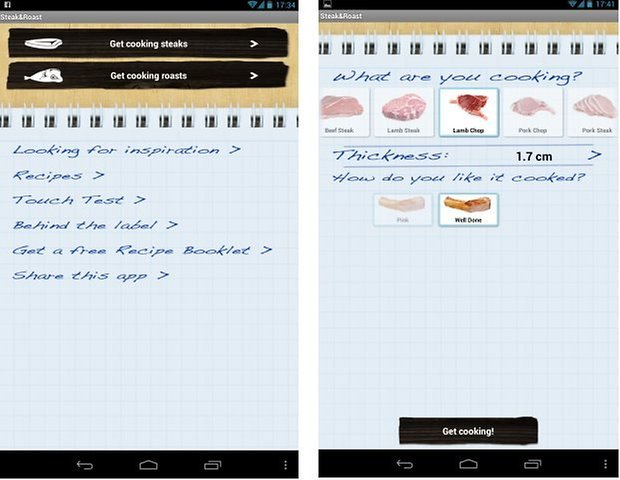 17:34
Steak&Roast
Get cooking steaks >
Get cooking roasts >
Looking for inspiration >
Recipes >
Touch Test >
Behind the label >
Get a free Recipe Booklet >
Share this app >
17:41
Steak&Roast
What are you cooking?
Beef Steak Lamb Steak Lamb Chop Pork Chop Pork Steak
Thickness: 1.7 cm >
How do you like it cooked?
Pink Well Done
Get cooking!